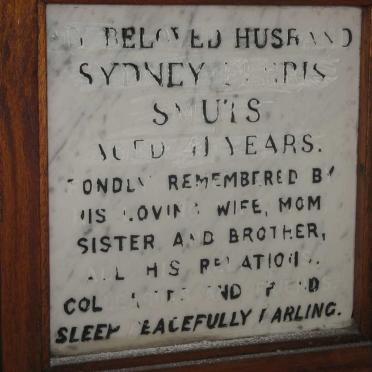 MY BELOVED HUSBAND
SYDNEY
SMUTS
AGED 41 YEARS.
FONDLY REMEMBERED BY
HIS LOVING WIFE, MOM
SISTER AND BROTHER,
ALL HIS RELATIONS.
AND FRIENDS
SLEEP PEACEFULLY DARLING.